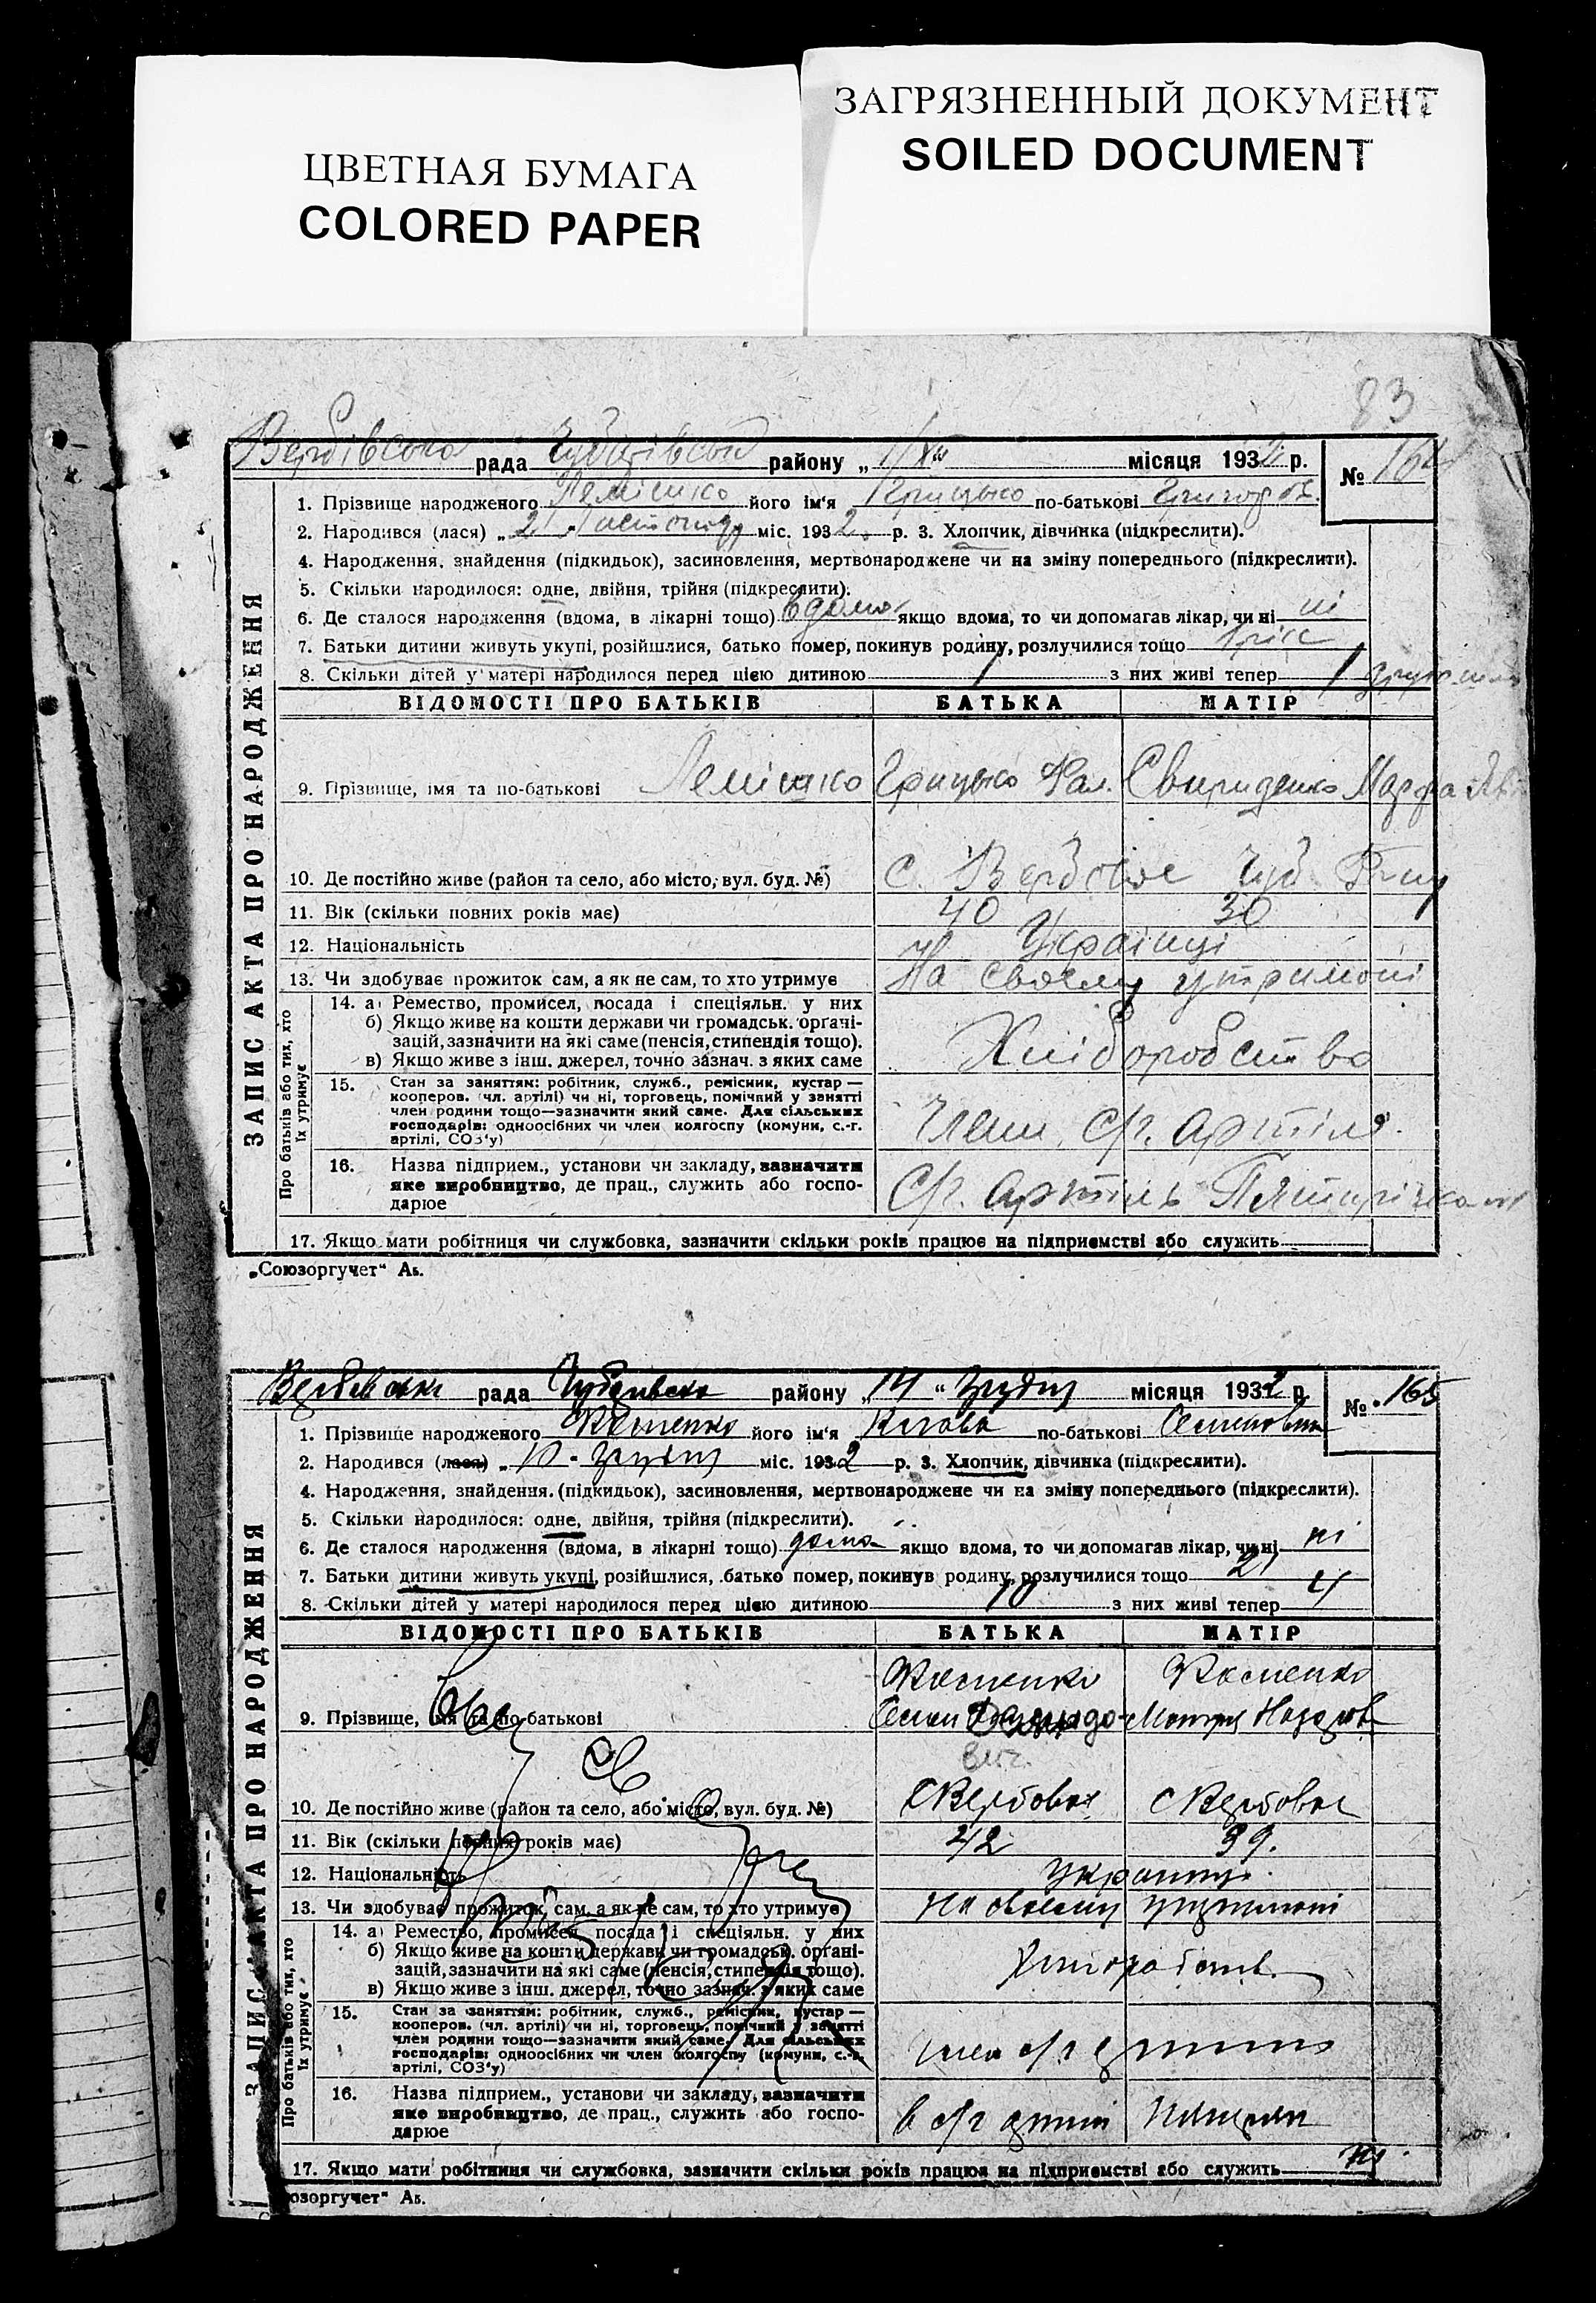 ЗАГРЯЗНЕННЫЙ ДОКУМЕНТ
SOILED DOCUMENT
ЦВЕТНАЯ БУМАГА
COLORED PAPER
83
Вербівська рада району „ “ місяця 1932 р. № 164
ЗАПИС АКТА ПРО НАРОДЖЕННЯ
1. Прізвище народженого Лемішко його ім'я Грицько по-батькові
2. Народився (лася) „2 Листопаду міс. 1932 р. 3. Хлопчик, дівчинка (підкреслити).
4. Народження, знайдення (підкидьок), засиновлення, мертвонароджене чи на зміну попереднього (підкреслити).
5. Скільки народилося: одне, двійня, трійня (підкреслити).
6. Де сталося народження (вдома, в лікарні тощо) вдома якщо вдома, то чи допомагав лікар, чи ні ні
7. Батьки дитини живуть укупі, розійшлися, батько помер, покинув родину, розлучилися тощо
8. Скільки дітей у матері народилося перед цією дитиною 1 з них живі тепер 1
ВІДОМОСТІ ПРО БАТЬКІВ БАТЬКА МАТІР
9. Прізвище, імя та по-батькові Лемішко Грицько Свириденко Марфа
10. Де постійно живе (район та село, або місто, вул. буд. №) с. Вербове Чуб.
11. Вік (скільки повних років має) 40 30
12. Національність Українці
13. Чи здобуває прожиток сам, а як не сам, то хто утримує На своєму утримані
Про батьків або тих, хто їх утримує
14. а) Ремество, промисел, посада і спеціяльн. у них
б) Якщо живе на кошти держави чи громадськ. органі-
зацій, зазначити на які саме (пенсія, стипендія тощо).
в) Якщо живе з інш. джерел, точно зазнач. з яких саме
Хліборобство
15. Стан за заняттям: робітник, служб., ремісник, кустар —
кооперов. (чл. артілі) чи ні, торговець, помічний у занятті
член родини тощо—зазначити який саме. Для сільських
господарів: одноосібних чи член колгоспу (комуни, с.-г.
артілі, СОЗ'у)
Член С/г. артіля.
16. Назва підприєм., установи чи закладу, зазначити
яке виробництво, де прац., служить або госпо-
дарює
С/г. артіль
17. Якщо мати робітниця чи службовка, зазначити скільки років працює на підприємстві або служить
„Союзоргучет“ Аб.
Вербівська рада району „14“ Грудня місяця 1932 р. № 165
ЗАПИС АКТА ПРО НАРОДЖЕННЯ
1. Прізвище народженого його ім'я по-батькові
2. Народився (лася) „ Грудня міс. 1932 р. 3. Хлопчик, дівчинка (підкреслити).
4. Народження, знайдення (підкидьок), засиновлення, мертвонароджене чи на зміну попереднього (підкреслити).
5. Скільки народилося: одне, двійня, трійня (підкреслити).
6. Де сталося народження (вдома, в лікарні тощо) дома якщо вдома, то чи допомагав лікар, чи ні ні
7. Батьки дитини живуть укупі, розійшлися, батько помер, покинув родину, розлучилися тощо 21
8. Скільки дітей у матері народилося перед цією дитиною 10 з них живі тепер 4
ВІДОМОСТІ ПРО БАТЬКІВ БАТЬКА МАТІР
9. Прізвище, імя та по-батькові
10. Де постійно живе (район та село, або місто, вул. буд. №) с Вербове с Вербове
11. Вік (скільки повних років має) 42 39.
12. Національність Українці
13. Чи здобуває прожиток сам, а як не сам, то хто утримує на своєму утримані
Про батьків або тих, хто їх утримує
14. а) Ремество, промисел, посада і спеціяльн. у них
б) Якщо живе на кошти держави чи громадськ. органі-
зацій, зазначити на які саме (пенсія, стипендія тощо).
в) Якщо живе з інш. джерел, точно зазнач. з яких саме
15. Стан за заняттям: робітник, служб., ремісник, кустар —
кооперов. (чл. артілі) чи ні, торговець, помічний у занятті
член родини тощо—зазначити який саме. Для сільських
господарів: одноосібних чи член колгоспу (комуни, с.-г.
артілі, СОЗ'у)
член с/г
16. Назва підприєм., установи чи закладу, зазначити
яке виробництво, де прац., служить або госпо-
дарює
в с/г артілі
17. Якщо мати робітниця чи службовка, зазначити скільки років працює на підприємстві або служить ні
озоргучет“ Аб.